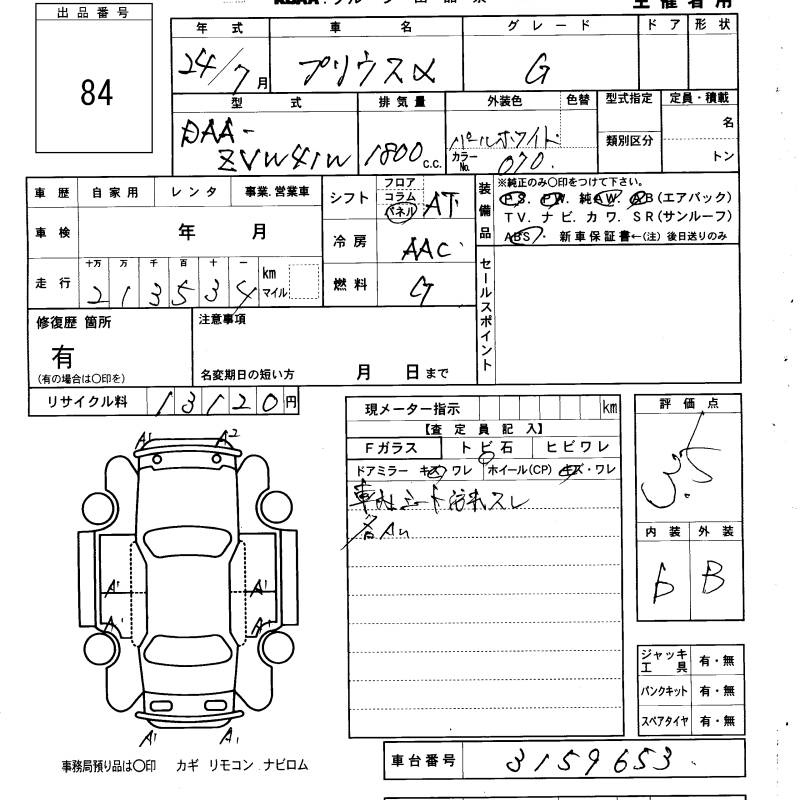 出品番号
84
年式 車名 グレード ドア 形状
24/7月 プリウスα G
型式 排気量 外装色 色替 型式指定 定員・積載
DAA-
ZVW41W 1800 c.c. パールホワイト 類別区分 名
カラーNo. 070. トン
車歴 自家用 レンタ 事業.営業車
車検 年 月
走行 十万 万 千 百 十 一
213534 km
マイル
シフト フロア
コラム
パネル AT
冷房 AAC
燃料 G
装備品 ※純正のみ○印をつけて下さい。
PS. PW. 純AW. AB(エアバック)
TV. ナビ. カワ. SR(サンルーフ)
ABS・ 新車保証書←(注) 後日送りのみ
セールスポイント
修復歴 箇所
有
(有の場合は○印を)
注意事項
名変期日の短い方 月 日まで
リサイクル料 13120円
現メーター指示 km
【査定員記入】
Fガラス トビ石 ヒビワレ
ドアミラー キズ・ワレ ホイール(CP) キズ・ワレ
スレ
各A4
評価点
3.5
内装 外装
D B
A1 A2
A1 A1
A1 A1
A1 A1
ジャッキ
工具 有・無
パンクキット 有・無
スペアタイヤ 有・無
車台番号 3159653
事務局預り品は○印 カギ リモコン ナビロム